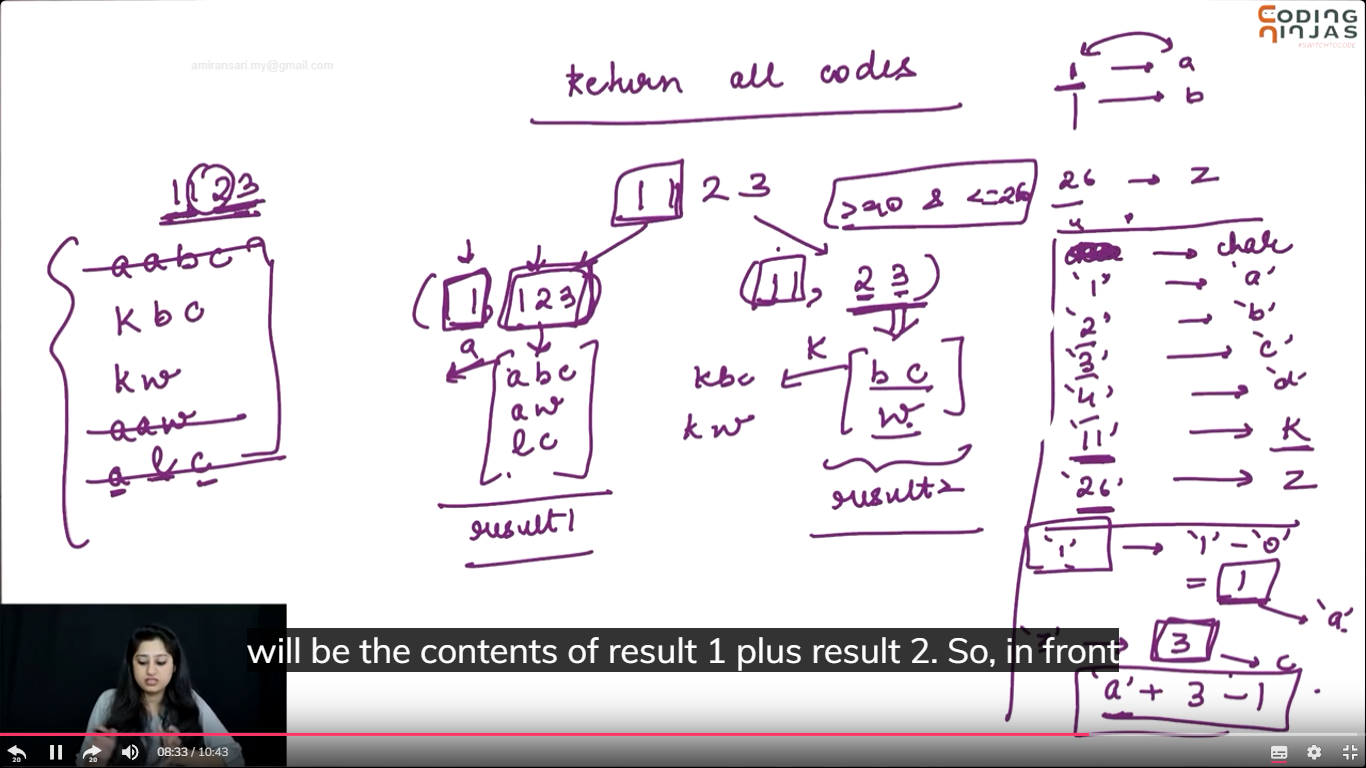 CODING NINJAS
#SWITCHTOCODE
amiransari.my@gmail.com
Return all codes
1 → a
1 → b
1123
11 23
>=10 & <=26
26 → Z
aabc
kbc
kw
aaw
alc
(1, 123)
a
abc
aw
lc
result1
(11, 23)
K
kbc
kw
bc
w
result2
→ char
'1' → 'a'
'2' → 'b'
'3' → 'c'
'4' → 'd'
'11' → K
'26' → Z
'1' → '1' - '0'
= 1
'a'
→ 3 → c
'a' + 3 - 1
will be the contents of result 1 plus result 2. So, in front
20 20 08:33 / 10:43